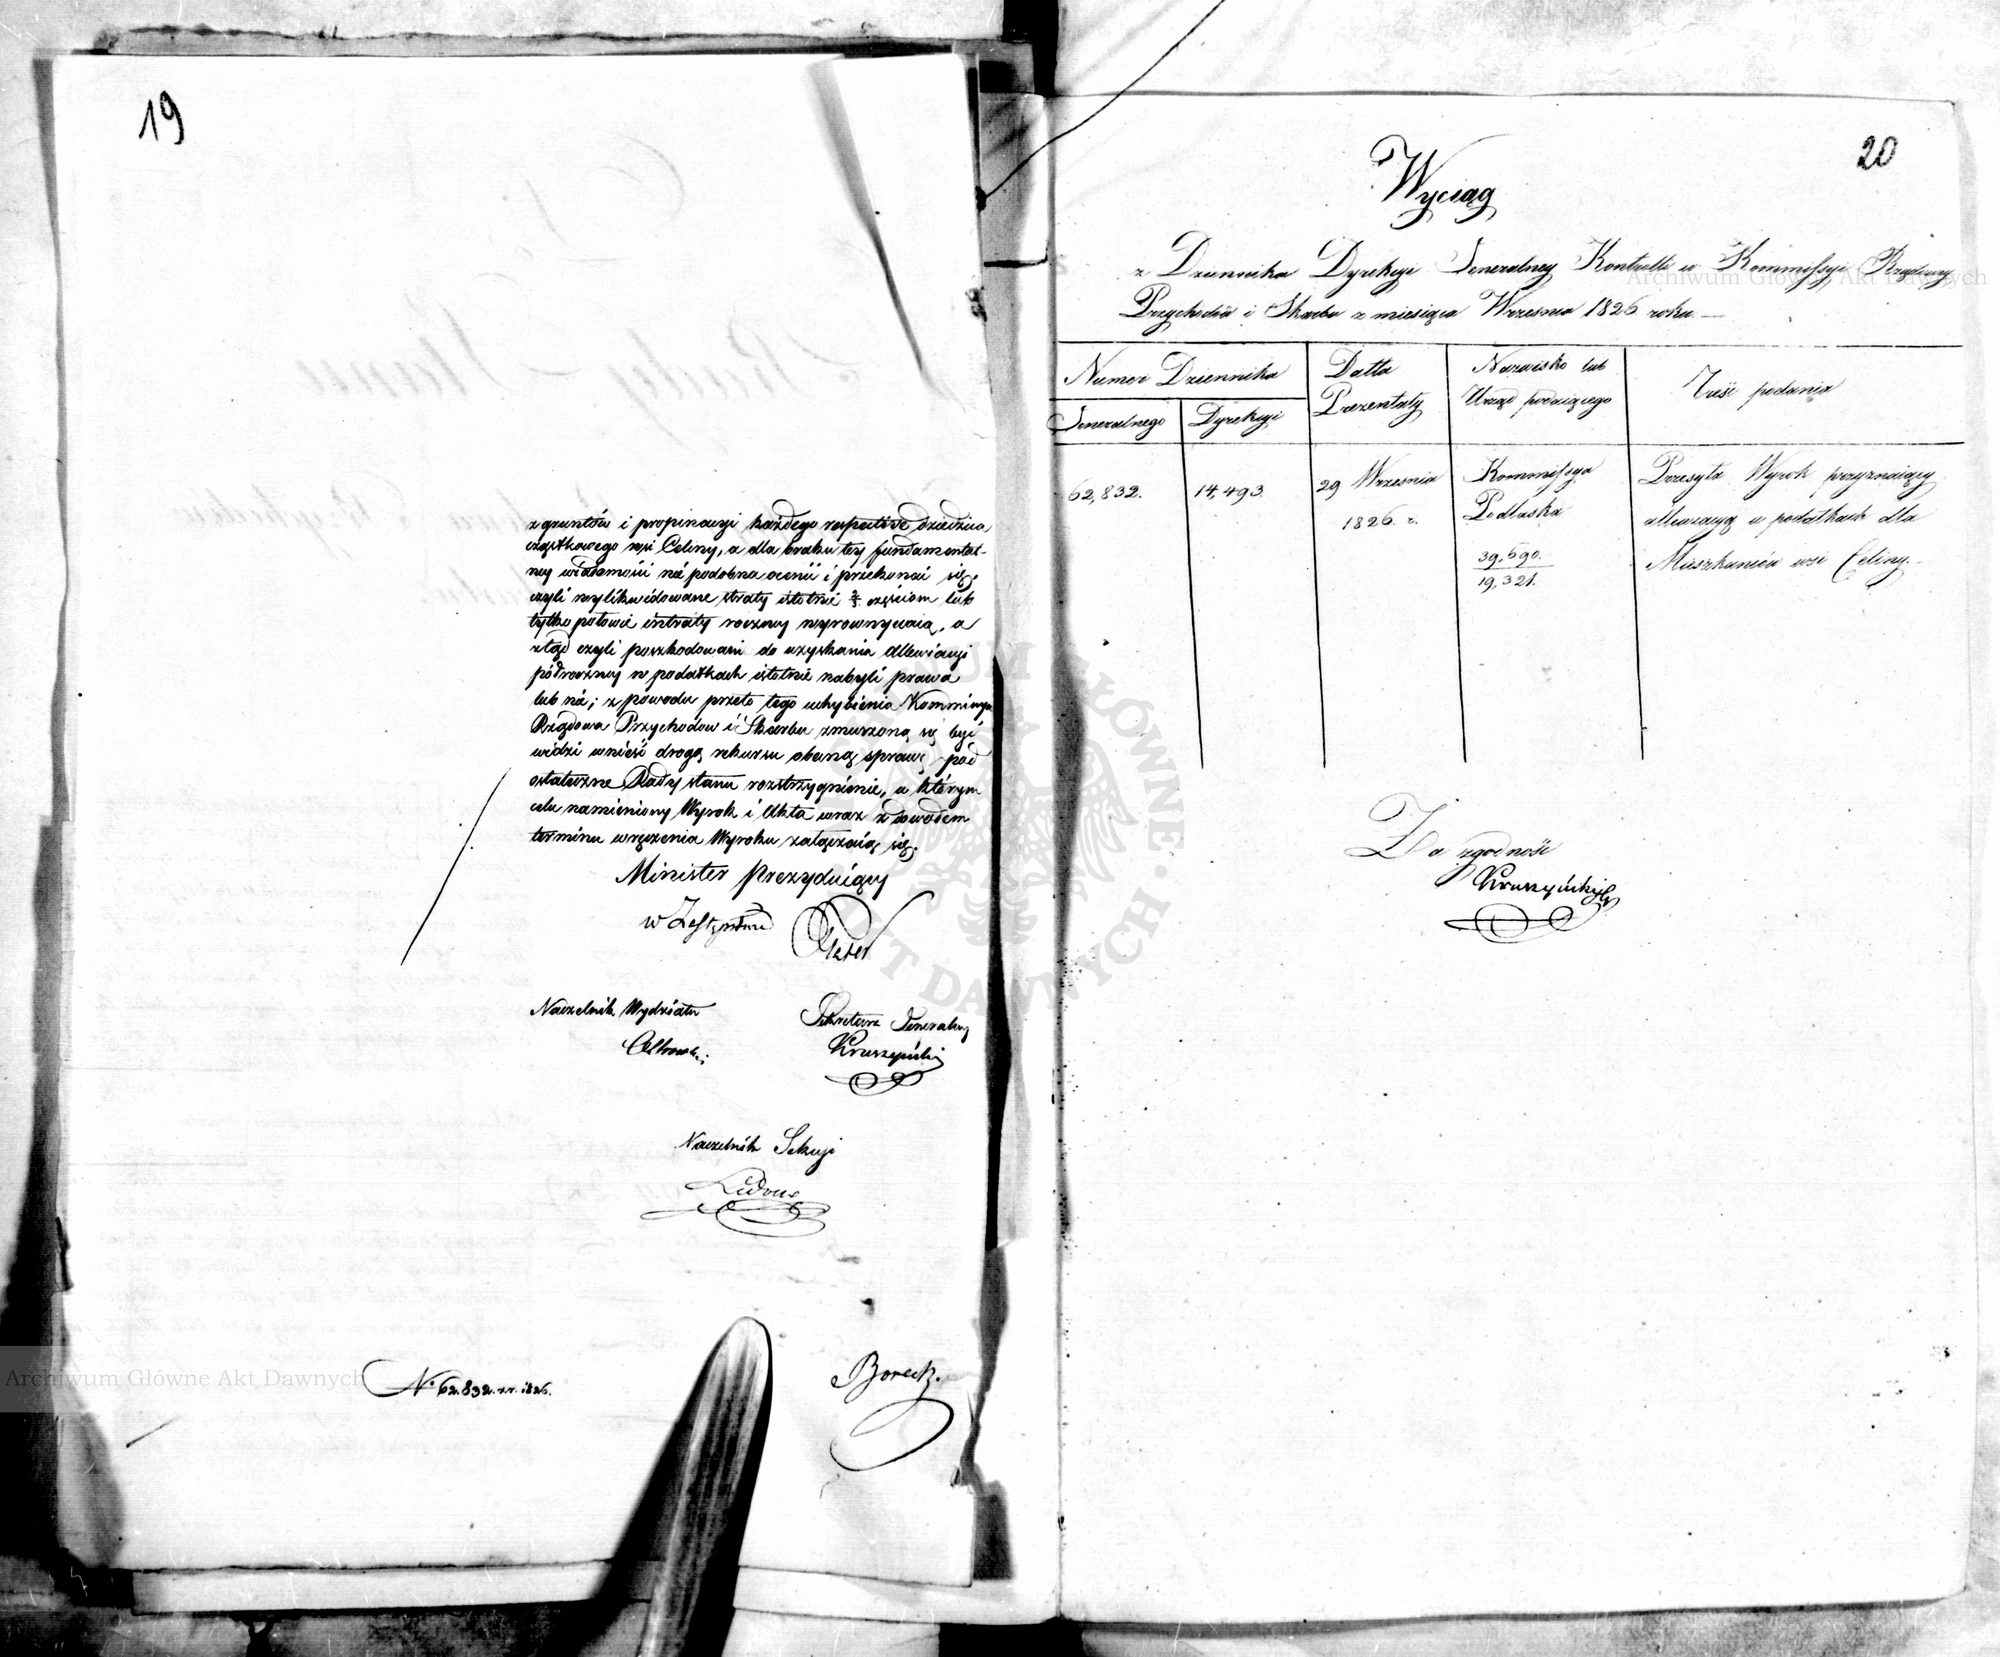 19
z gruntów i propinacyi każdego respective dziedzica
cząstkowego wsi Celiny, a dla braku tey fundamental-
ney wiadomości nie podobna ocenić i przekonać się,
czyli wylikwidowane straty istotnie ⅔ częściom lub
tylko połowie intraty roczney wyrownywaią, a
ztąd czyli poszkodowani do uzyskania allewiacyi
półroczney w podatkach istotnie nabyli prawa
lub nie; z powodu przeto tego uchybienia Kommissya
Rządowa Przychodow i Skarbu zmuszoną się być
widzi wnieść drogą rekursu obecną sprawę pod
ostateczne Rady stanu rozstrzygnienie, w którym
celu namieniony Wyrok i Akta wraz z dowodem
terminu wręczenia Wyroku załączaią się.
Minister Prezyduiący
w Zastępstwie Plater
Naczelnik Wydziału
Sekretarz Generalny
Kruszyński
Naczelnik Sekcyi
N° 62.832. r. 1826.
20
Wyciąg
z Dziennika Dyrekcyi Generalney Kontrolli w Kommissyi Rządowey
Przychodów i Skarbu z miesiąca Września 1826 roku. —
Numer Dziennika
Generalnego
Dyrekcyi
Datta
Prezentaty
Nazwisko lub
Urząd podaiącego
Treść podania
62,832.
14,493.
29 Września
1826. r.
Kommissya
Podlaska
39,690.
19,321.
Przesyła Wyrok przyznaiący
allewiacyą w podatkach dla
Mieszkańców wsi Celiny. —
Za zgodność
Kruszyński
Archiwum Główne Akt Dawnych
Archiwum Główne Akt Dawnych